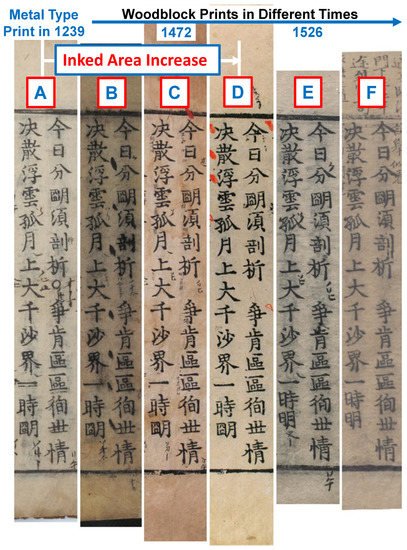 Metal Type
Print in 1239
Woodblock Prints in Different Times
1472
1526
Inked Area Increase
A
B
C
D
E
F
今日分朙湏剖析 爭肯區區徇丗情
决散浮雲孤月上大千沙界一時朙
今日分朙湏剖析 爭肯區區徇丗情
决散浮雲孤月上大千沙界一時朙
今日分朙湏剖析 爭肯區區徇丗情
决散浮雲孤月上大千沙界一時朙
今日分朙湏剖析 爭肯區區徇丗情
决散浮雲孤月上大千沙界一時朙
今日分朙湏剖析 爭肯區區徇丗情
决散浮雲孤月上大千沙界一時明
今日分朙湏剖析 爭肯區區徇丗情
决散浮雲孤月上大千沙界一時明